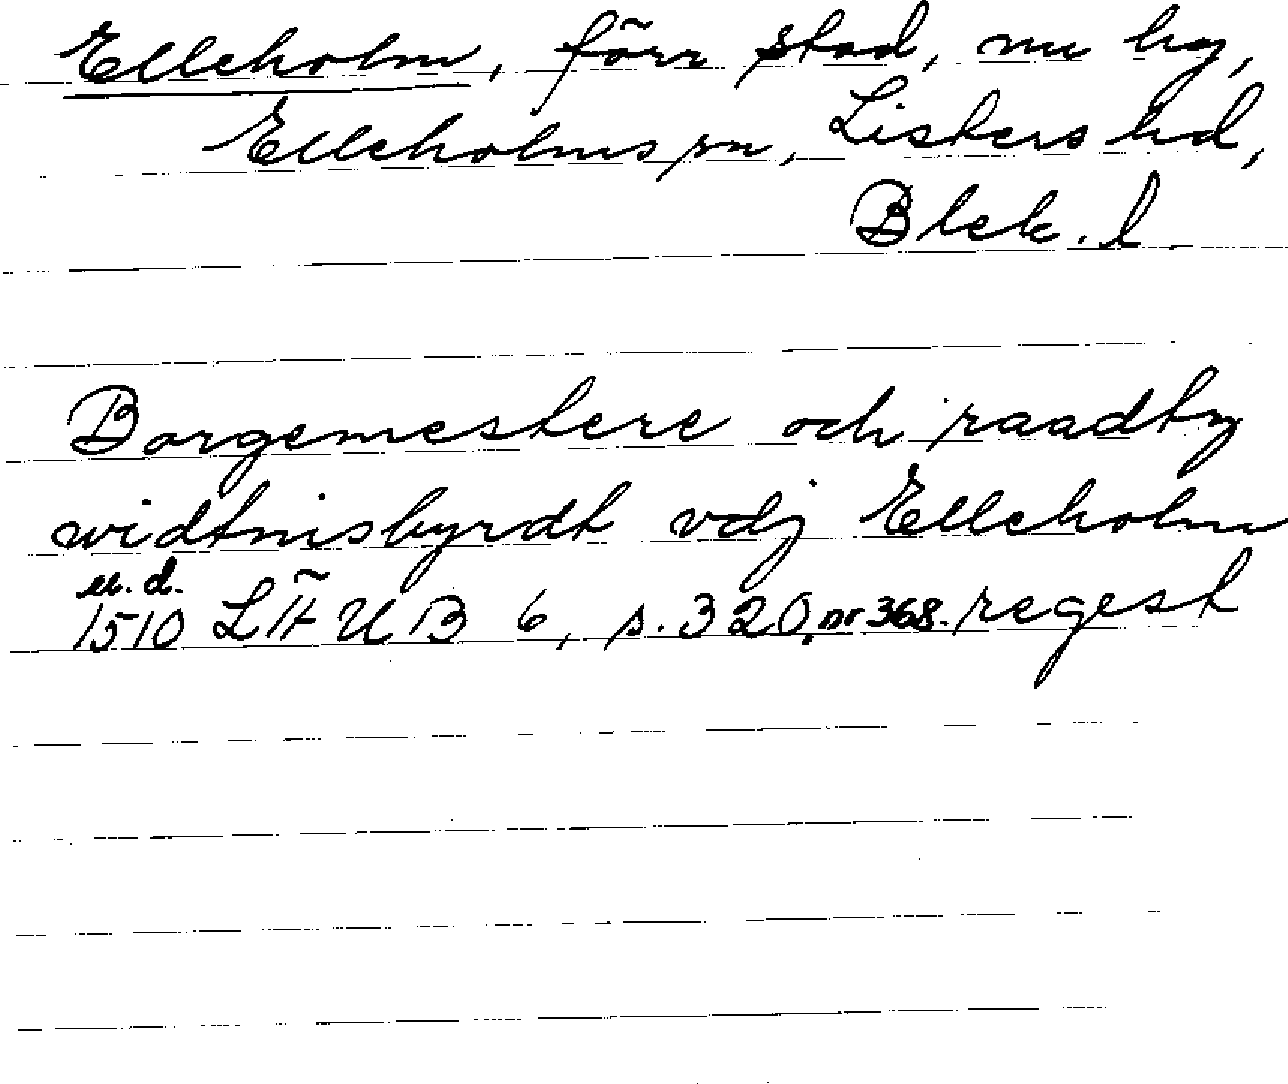 Elleholm, förr stad, nu by,
Elleholms sn, Listers hd,
Blek. l.
Borgemestere och raadtz
widtnisbyrdt vdj Elleholm
u. d.
1510 LÄUB 6, s. 320, nr 368. regest